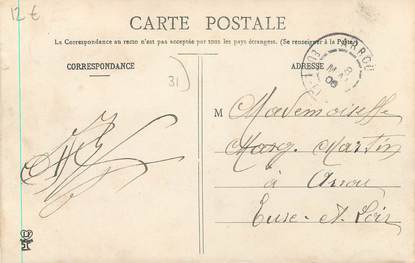 12 €
CARTE POSTALE
La Correspondance au recto n'est pas acceptée par tous les pays étrangers. (Se renseigner à la Poste)
CORRESPONDANCE
ADRESSE
31
M Mademoiselle
Marg. Martin
à Arrou
Eure-et-Loir